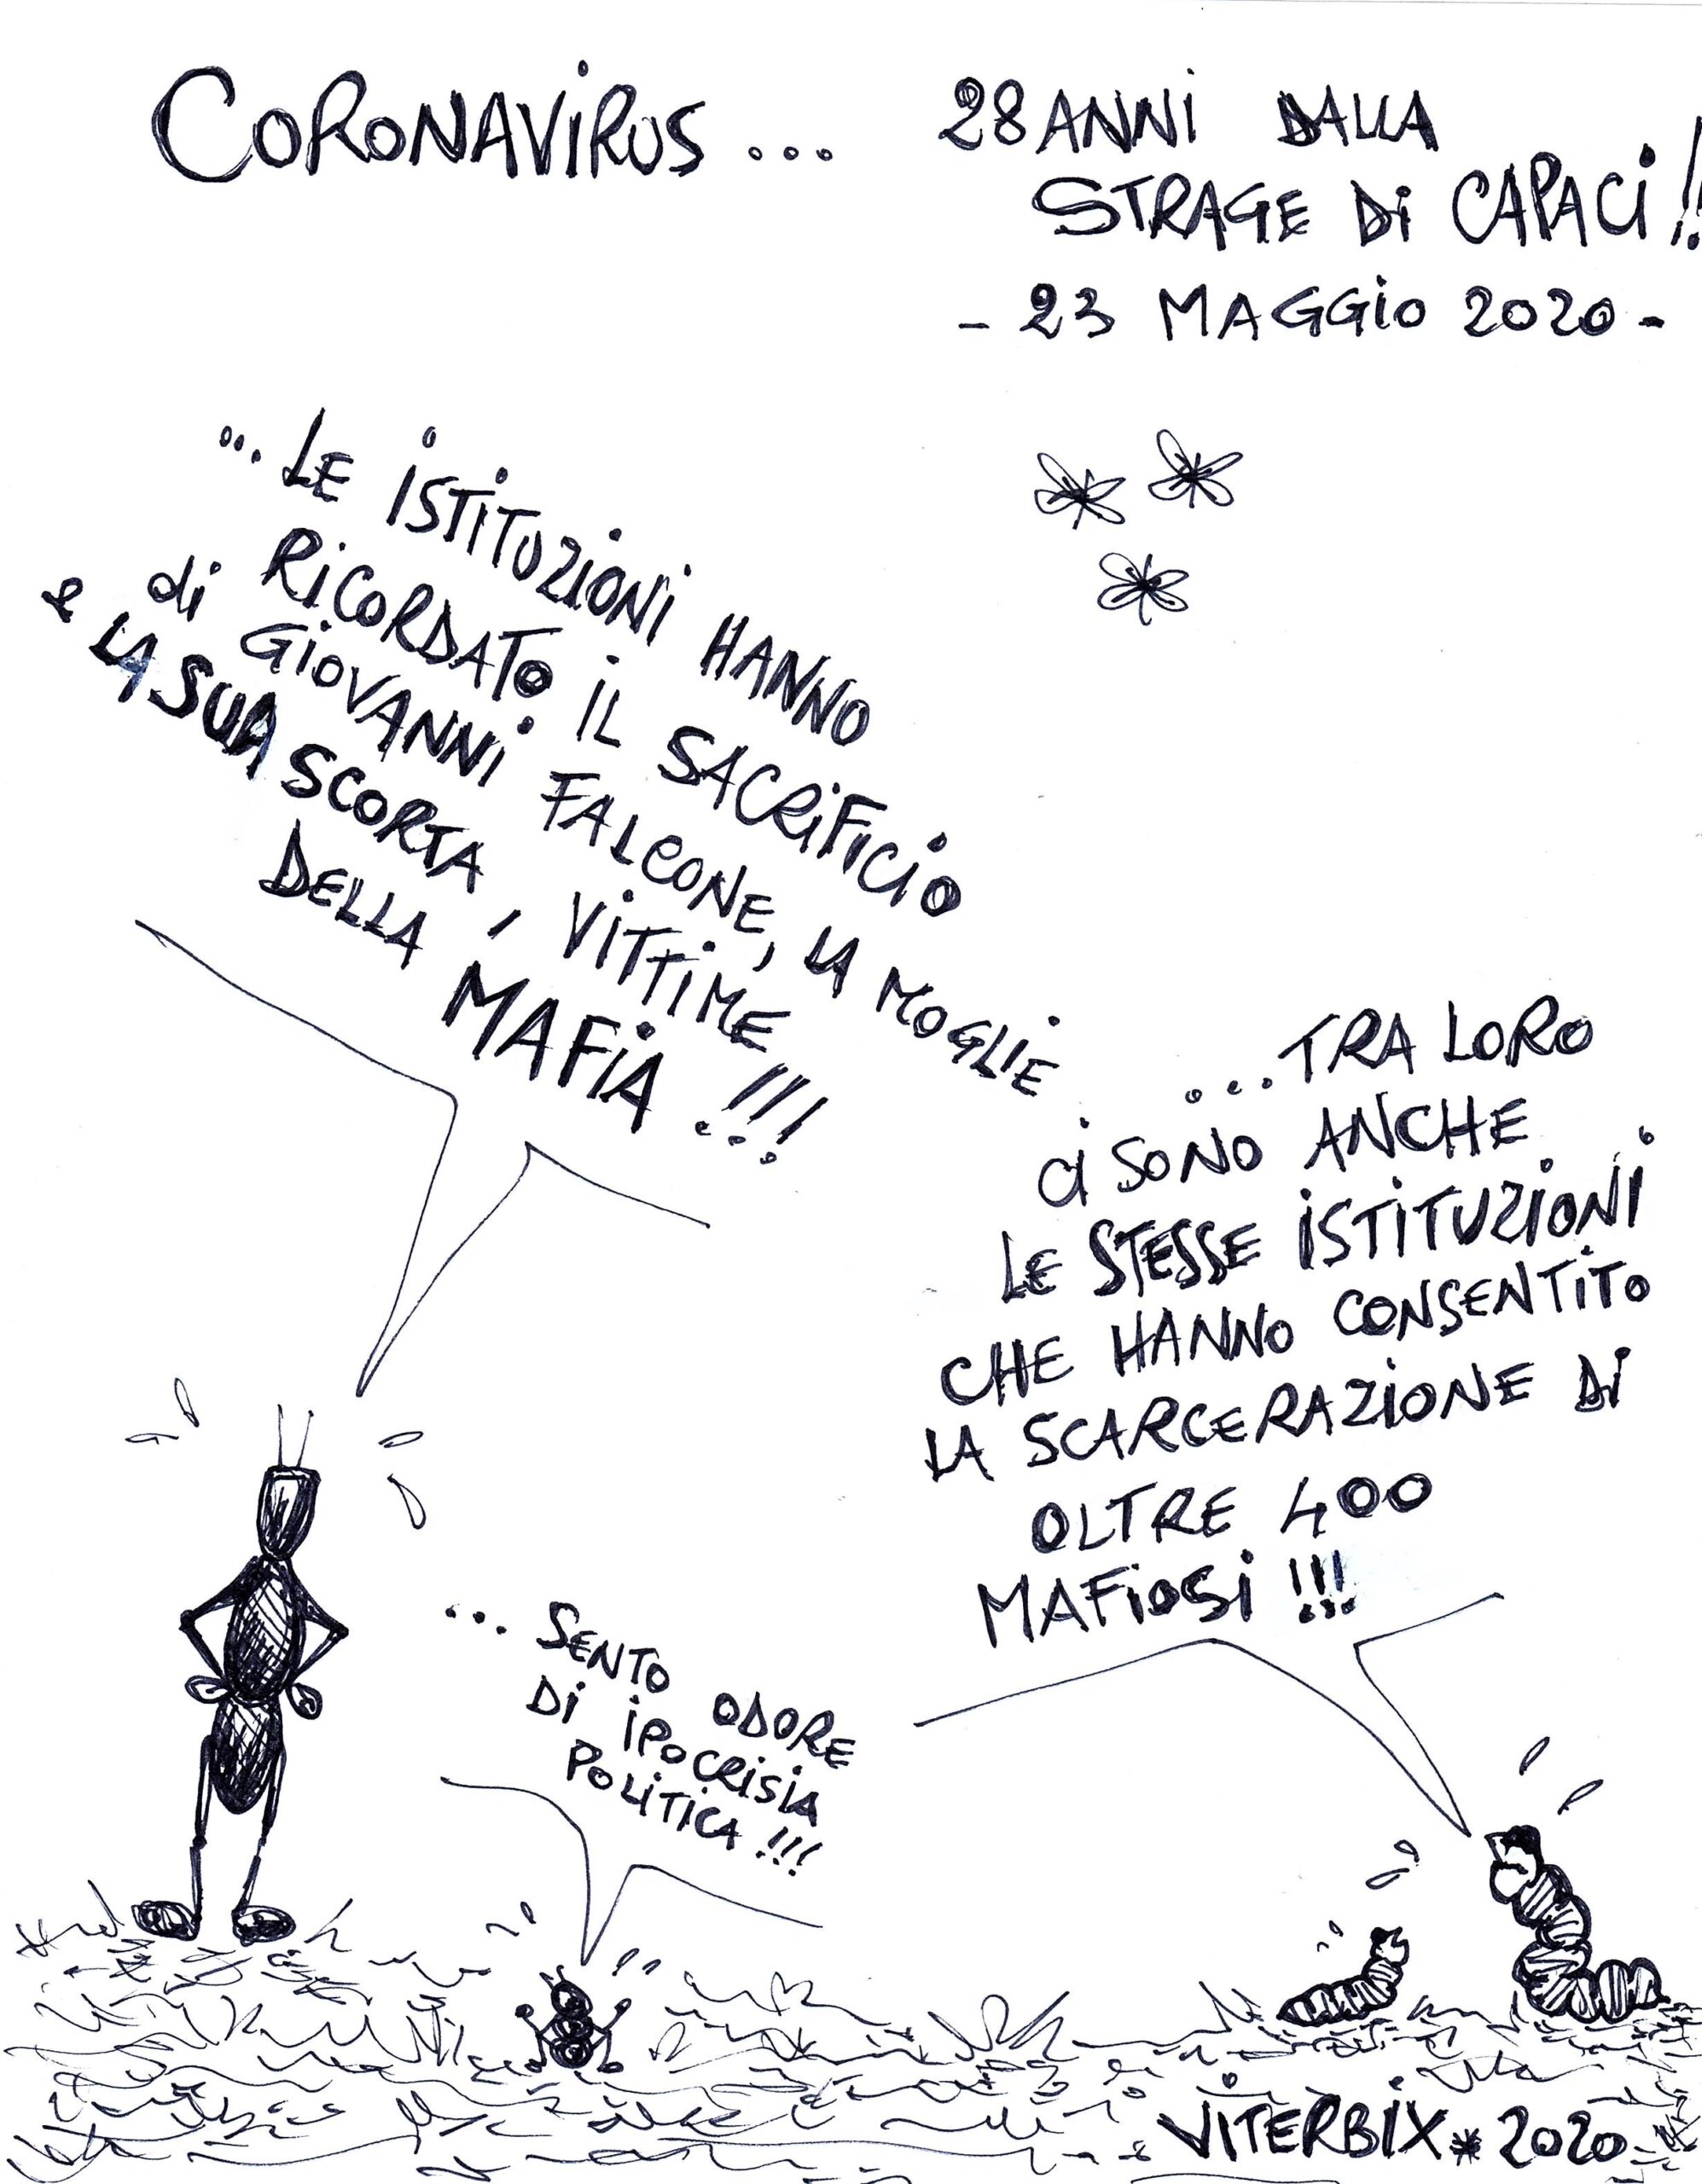 CORONAVIRUS ...
28 ANNI DALLA
STRAGE Di CAPACI!!
- 23 MAGGIO 2020 -
... LE ISTITUZIONI HANNO
RICORDATO IL SACRIFICIO
di GIOVANNI FALCONE, LA MOGLIE
e LA SUA SCORTA, VITTIME
DELLA MAFIA!!!
...TRA LORO
Ci SONO ANCHE
LE STESSE ISTITUZIONI
CHE HANNO CONSENTITO
LA SCARCERAZIONE DI
OLTRE 400
MAFIOSI!!!
... SENTO ODORE
DI IPOCRISIA
POLITICA!!!
VITERBIX * 2020